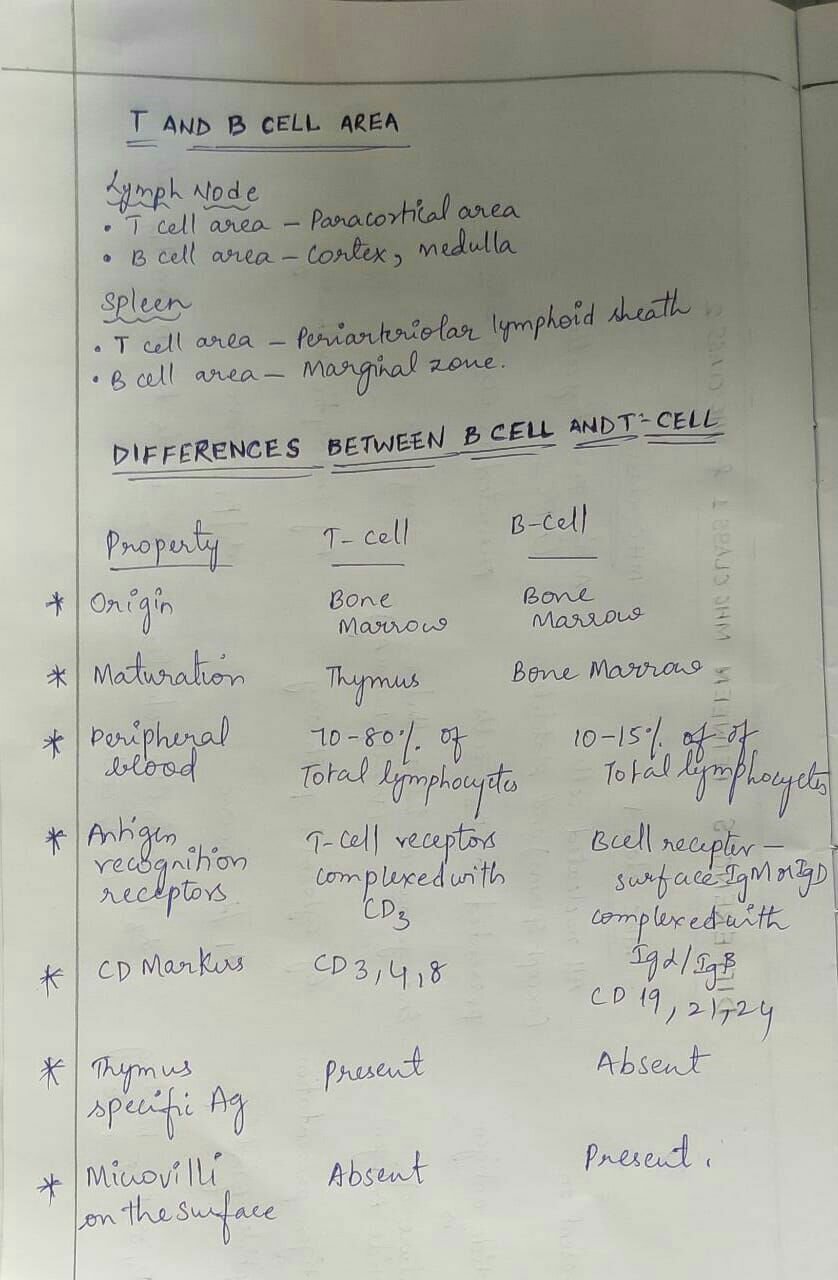 T AND B CELL AREA
Lymph Node
• T cell area – Paracortical area
• B cell area – Cortex, medulla
Spleen
• T cell area – Periarteriolar lymphoid sheath
• B cell area – Marginal zone.
DIFFERENCES BETWEEN B CELL AND T-CELL
Property T-cell B-cell
* Origin Bone Marrow Bone Marrow
* Maturation Thymus Bone Marrow
* Peripheral 70-80% of 10-15% of of
blood Total lymphocytes Total lymphocytes
* Antigen T-Cell receptors B cell recepter –
recognition complexed with surface IgM or IgD
receptors CD3 complexed with
Igα/IgB
* CD Markers CD 3,4,8 CD 19, 21, 24
* Thymus Present Absent
specific Ag
* Microvilli Absent Present.
on the surface